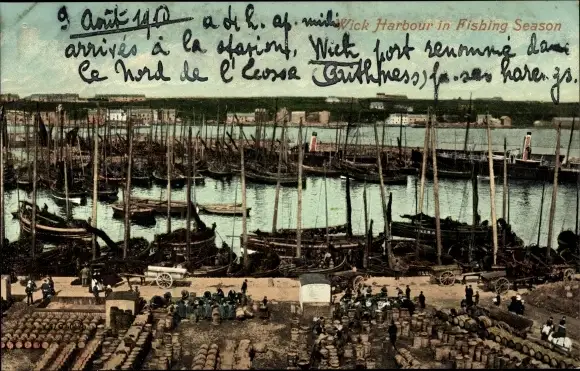 9 Août 1950 à 4 h. ap. midi
Wick Harbour in Fishing Season
arrivés à la station, Wick port renommé dans
le Nord de l'Ecosse (Caithness) p. ses harengs